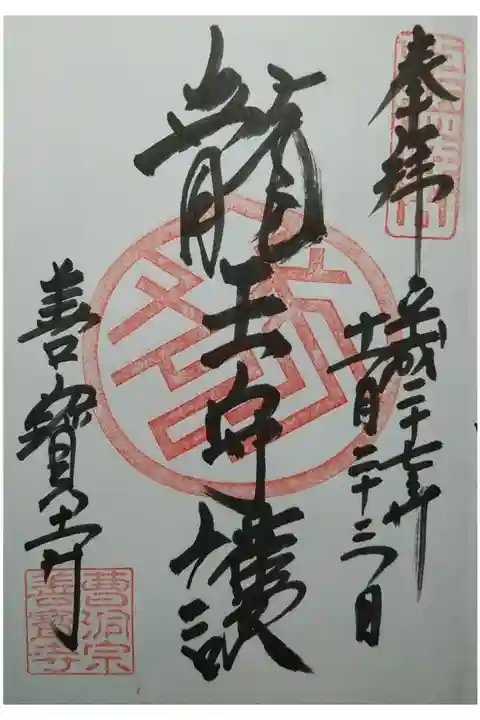 奉拝
平成二十七年
十一月二十三日
龍王 護
善寳寺
曹洞宗
善寳寺